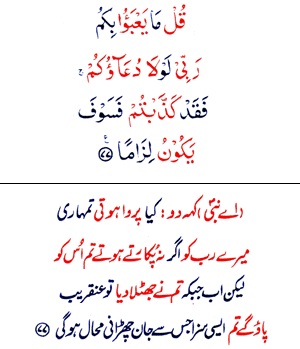 قُلْ مَا يَعْبَؤُا بِكُمْ
رَبِّىْ لَوْلَا دُعَآؤُكُمْ ۚ
فَقَدْ كَذَّبْتُمْ فَسَوْفَ
يَكُوْنُ لِزَامًا ﴿۷۷﴾
(اے نبیؐ) کہہ دو: کیا پروا ہوتی تمہاری
میرے رب کو اگر نہ پکارتے ہوتے تم اُس کو
لیکن اب جبکہ تم نے جھٹلا دیا تو عنقریب
پاؤ گے تم ایسی سزا جس سے جان چھڑانی محال ہوگی ﴿۷۷﴾